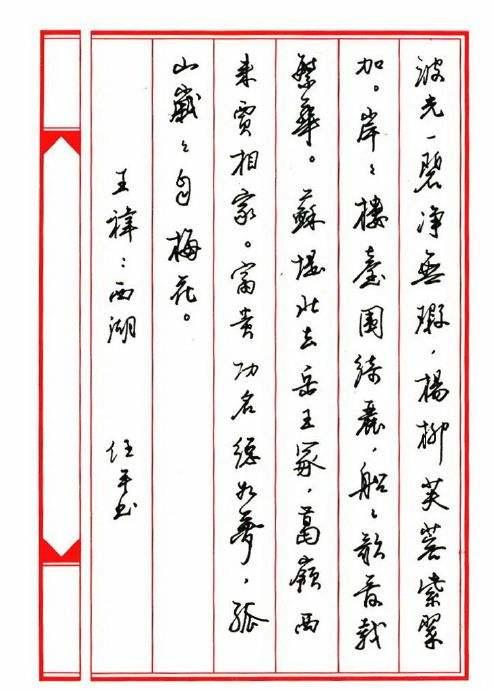 波光一碧净無瑕，楊柳芙蓉紫翠
加。岸々樓臺圍綺麗，船々歌音載
繁華。蘇堤北去岳王冢，葛嶺西
来賈相家。富贵功名總如夢，孤
山歲々自梅花。
王禕：西湖
任平书